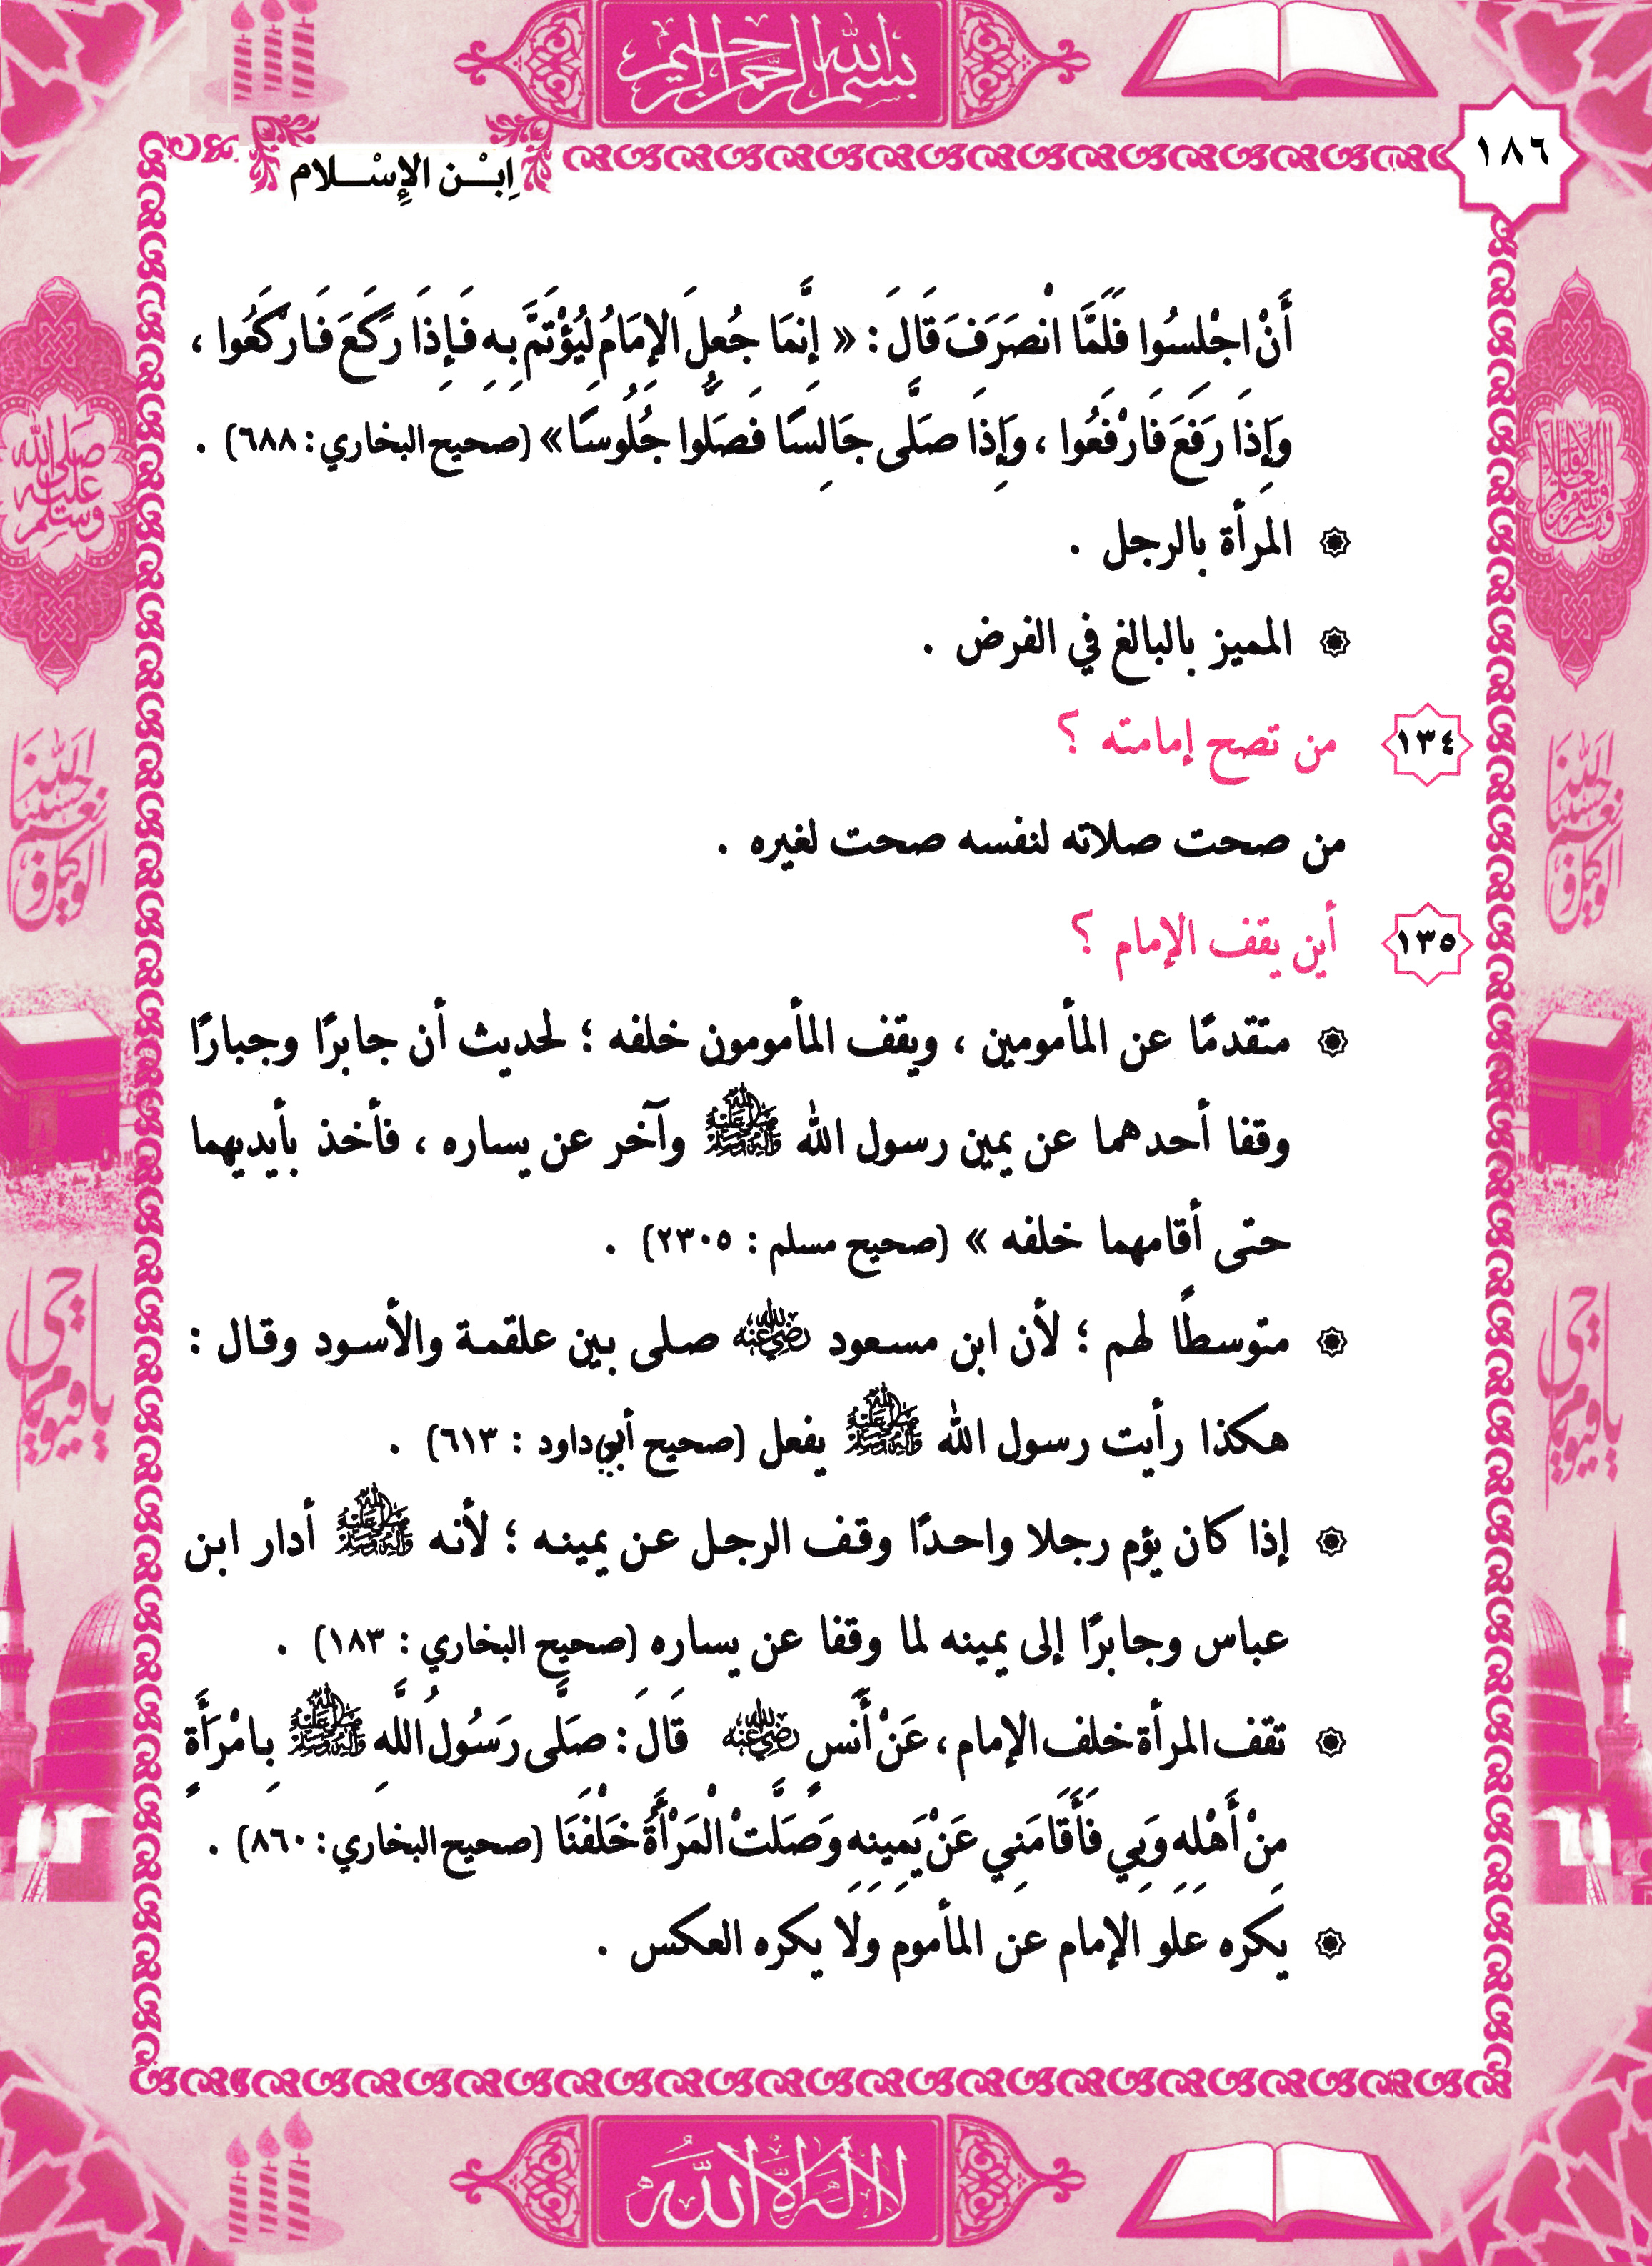 بسم الله الرحمن الرحيم
١٨٦
اِبْـن الإِسْـلام
أَنْ اجْلِسُوا فَلَمَّا انْصَرَفَ قَالَ : « إِنَّمَا جُعِلَ الإِمَامُ لِيُؤْتَمَّ بِهِ فَإِذَا رَكَعَ فَارْكَعُوا ،
وَإِذَا رَفَعَ فَارْفَعُوا ، وَإِذَا صَلَّى جَالِسًا فَصَلُّوا جُلُوسًا» (صحيح البخاري : ٦٨٨) .
المرأة بالرجل .
المميز بالبالغ في الفرض .
١٣٤ من تصح إمامته ؟
من صحت صلاته لنفسه صحت لغيره .
١٣٥ أين يقف الإمام ؟
متقدمًا عن المأمومين ، ويقف المأمومون خلفه ؛ لحديث أن جابرًا وجبارًا
وقفا أحدهما عن يمين رسول الله ﷺ وآخر عن يساره ، فأخذ بأيديهما
حتى أقامهما خلفه » (صحيح مسلم : ٢٣٠٥) .
متوسطًا لهم ؛ لأن ابن مسعود رضي الله عنه صلى بين علقمة والأسود وقال :
هكذا رأيت رسول الله ﷺ يفعل (صحيح أبي داود : ٦١٣) .
إذا كان يؤم رجلا واحدًا وقف الرجل عن يمينه ؛ لأنه ﷺ أدار ابن
عباس وجابرًا إلى يمينه لما وقفا عن يساره (صحيح البخاري : ١٨٣) .
تقف المرأة خلف الإمام ، عَنْ أَنَسٍ رضي الله عنه قَالَ : صَلَّى رَسُولُ اللَّهِ ﷺ بِامْرَأَةٍ
مِنْ أَهْلِهِ وَبِي فَأَقَامَنِي عَنْ يَمِينِهِ وَصَلَّتْ الْمَرْأَةُ خَلْفَنَا (صحيح البخاري : ٨٦٠) .
يكره علو الإمام عن المأموم ولا يكره العكس .
لا إله إلا الله